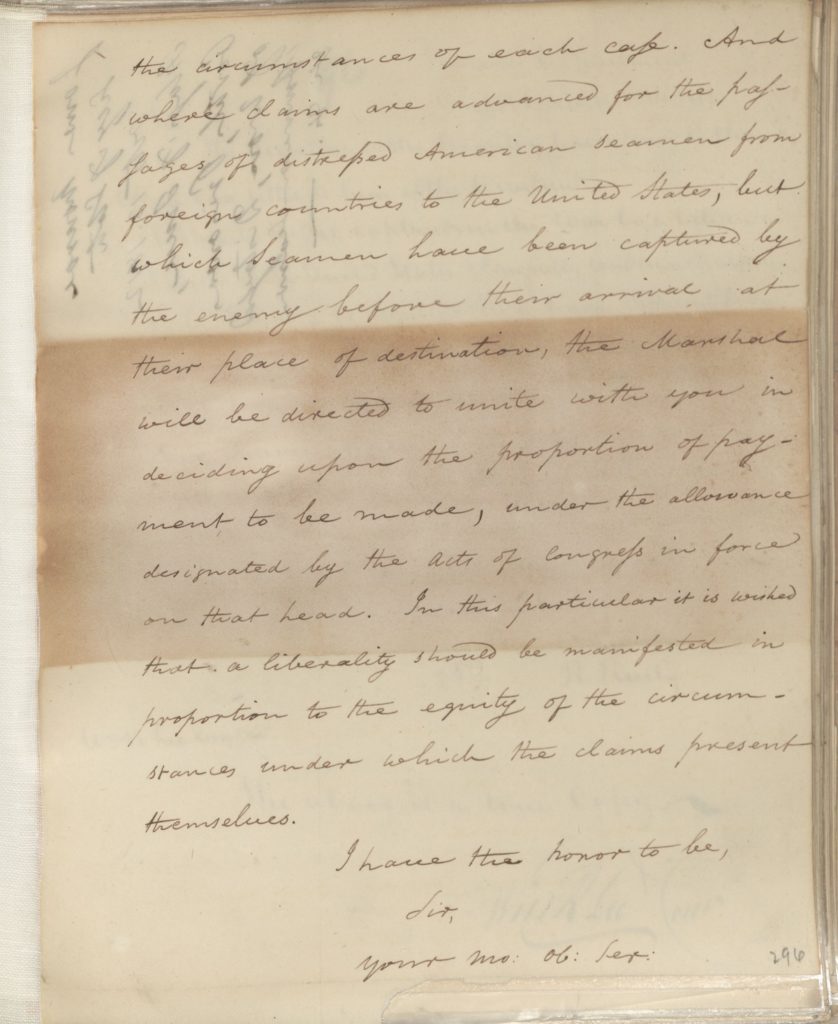 the circumstances of each case. And
where claims are advanced for the pas-
sages of distressed American seamen from
foreign countries to the United States, but
which seamen have been captured by
the enemy before their arrival at
their place of destination, the Marshal
will be directed to unite with you in
deciding upon the proportion of pay-
ment to be made, under the allowance
designated by the Acts of Congress in force
on that head. In this particular it is wished
that a liberality should be manifested in
proportion to the equity of the circum-
stances under which the claims present
themselves.
I have the honor to be,
Sir,
your mo: ob: Ser:
296